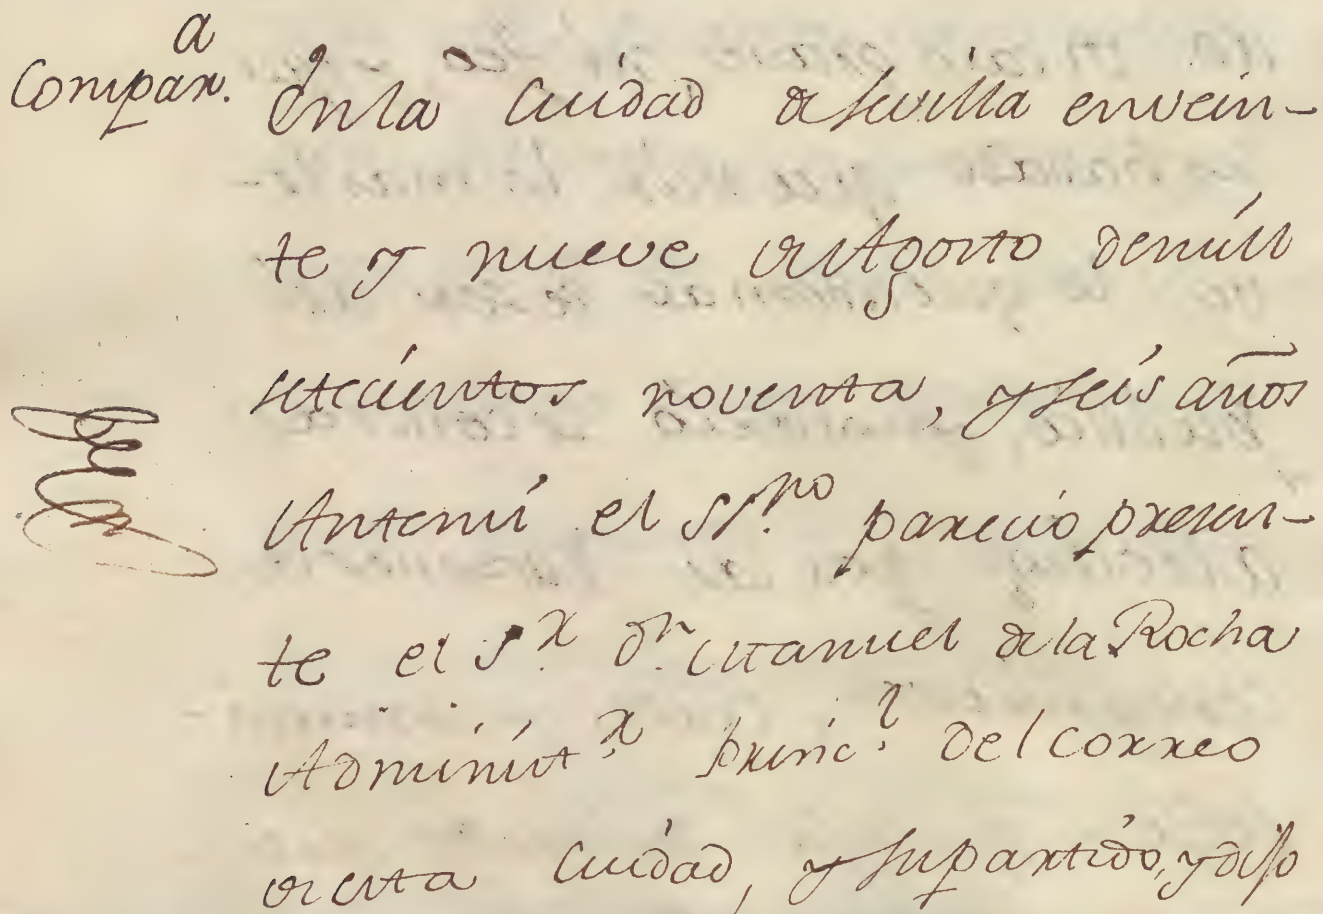 Compar.ᵃ
En la Ciudad de Sevilla en vein-
te y nueve de Agosto de mill
setecientos noventa, y seis años
Ante mi el ss.ⁿᵒ parecio presen-
te el S.ʳ D.ⁿ Manuel de la Rocha
Administ.ʳ princ.ˡ del correo
de esta Ciudad, y su partido, y dijo